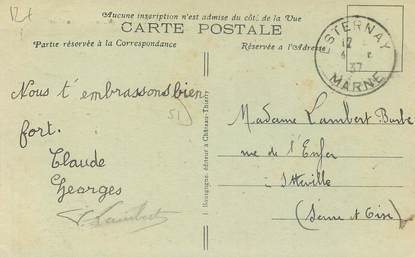 Aucune inscription n'est admise du côté de la Vue
CARTE POSTALE
Partie réservée à la Correspondance
Réservée à l'Adresse
ESTERNAY
12
37
MARNE
Nous t'embrassons bien
fort.
Claude
Georges
G. Lambert
51
J. Bourgogne, éditeur à Château-Thierry
Madame Lambert Barbe
rue de l'Enfer
à Itteville
(Seine et Oise)